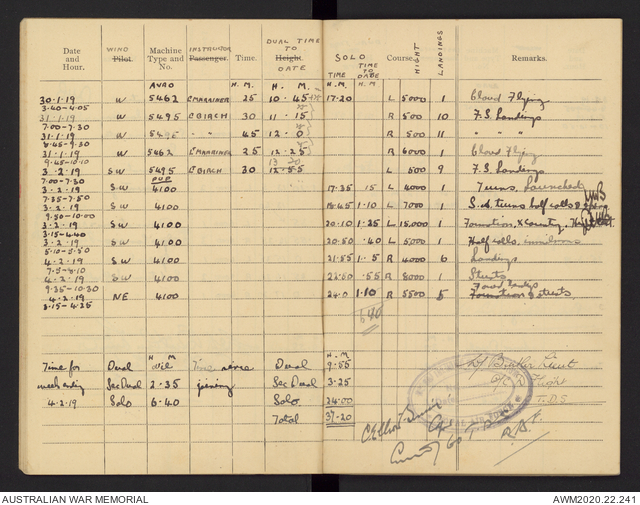 Date and Hour. WIND Pilot. Machine Type and No. INSTRUCTOR Passenger. Time. DUAL TIME TO Height. DATE SOLO TIME TIME TO DATE Course. HIGHT LANDINGS Remarks.
AVRO H. M. H. M. H.M. H M
30.1.19 W 5462 25 10.45 17.20 L 5000 1 Cloud Flying
3.40-4.05
31.1.19 W 5495 BIRCH 30 11.15 R 500 10 F.S. Landings
7.00-7.30
31.1.19 W 5495 " " 45 12.0 R 500 11 " " "
8.45-9.30
31.1.19 W 5462 25 12.25 R 6000 1 Cloud Flying
9.45-10.10
3.2.19 SW 5495 BIRCH 30 12.55 L 500 9 F.S. Landings
7.00-7.30 PUP
3.2.19 SW 4100 17.35 15 L 4000 1 Turns,
7.35-7.50
3.2.19 SW 4100 18.45 1.10 L 7000 1 S.A. turns half rolls &
9.50-10.00
3.2.19 SW 4100 20.10 1.25 L 15,000 1 Formation, X Country,
3.15-4.40
3.2.19 SW 4100 20.50 .40 L 5000 1 Half rolls,
5.10-5.50
4.2.19 SW 4100 21.55 1.5 R 4000 6 Landings
7.5-8.10
4.2.19 SW 4100 .55 R 8000 1 Stunts
9.35-10.30
4.2.19 NE 4100 24.0 1.10 R 5500 5 Formation & stunts
3.15-4.25
640
H M H.M.
Time for Dual nil Time since Dual 9.55
week ending Sec Dual 2.35 joining Sec Dual 3.25
4.2.19 Solo 6.40 Solo 24.00
Total 37.20
Lieut
Flight
T.D.S.
R.A.F.
AUSTRALIAN WAR MEMORIAL AWM2020.22.241